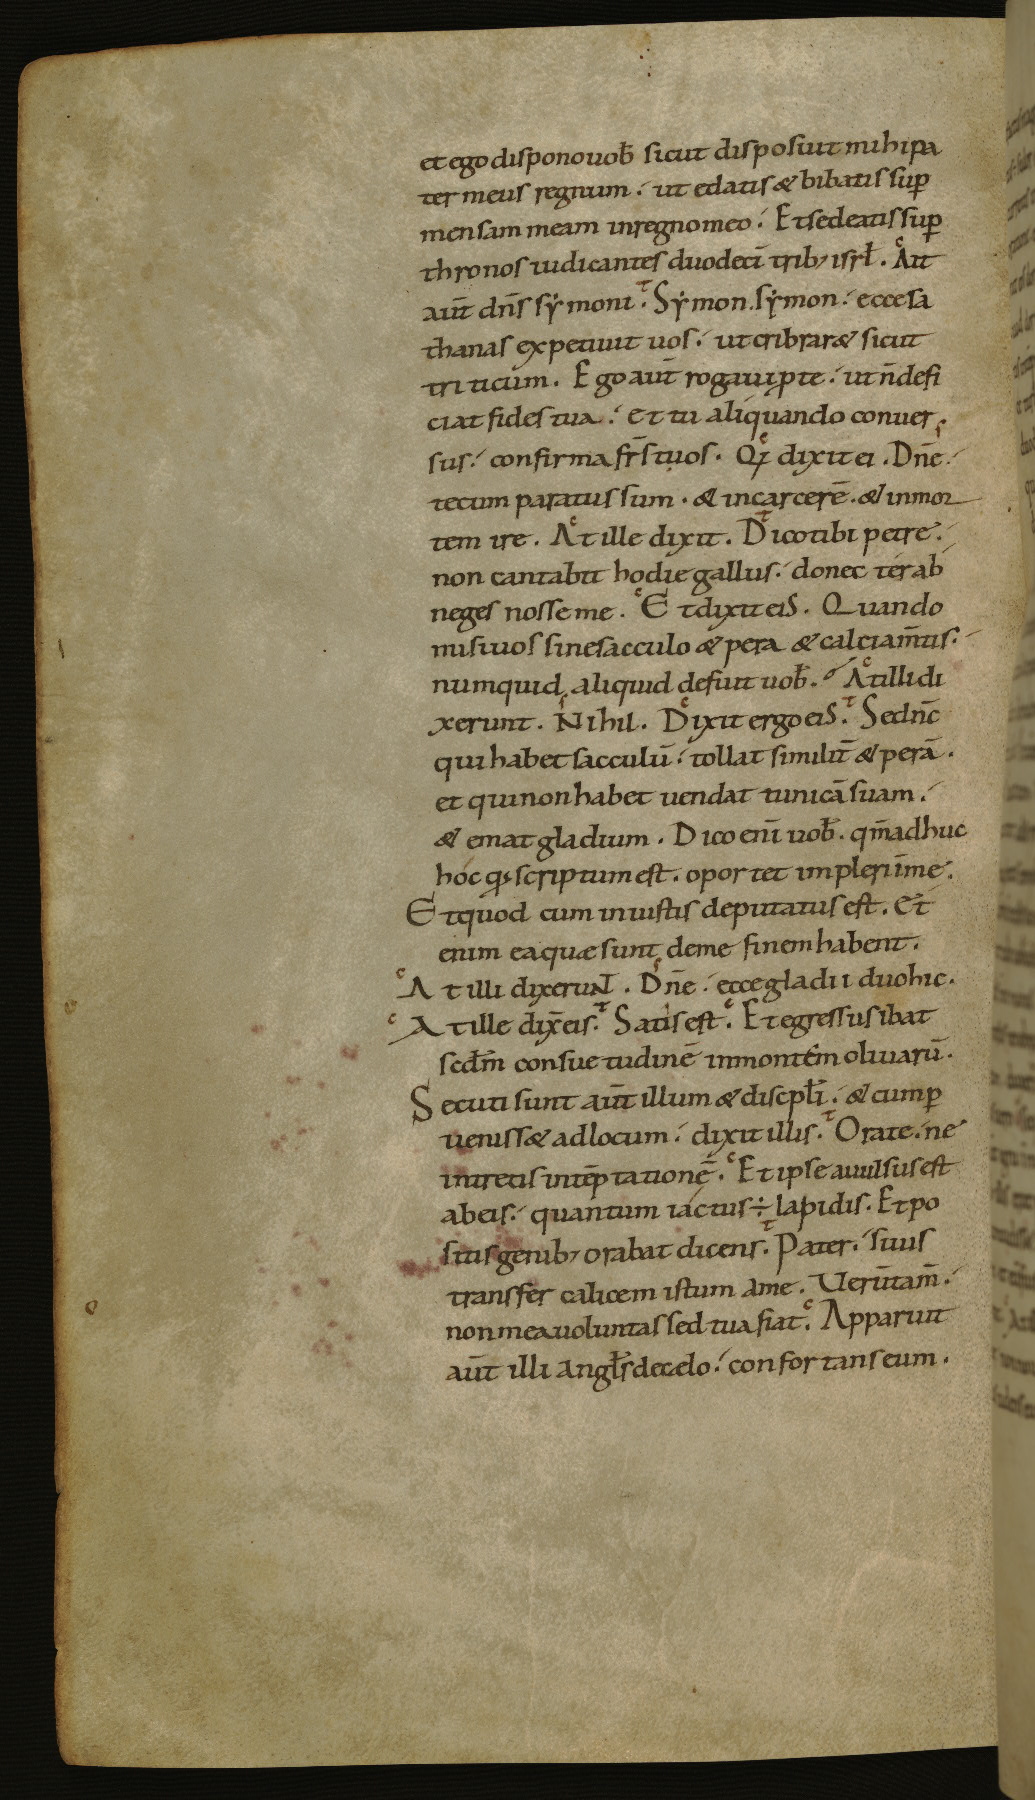 et ego dispono uob̅ sicut disposiut mihi pa
ter meus regnum. ut edatis & bibatis sup̅
mensam meam in regno meo. Et sedeatis sup̅
thronos iudicantes duodeci̅ trib; isrl̅. Ait
aut̅ dn̅s sẏmoni. Sẏmon. sẏmon. ecce sa
thanas expetiuit uos. ut cribrar& sicut
triticum. Ego aut̅ rogaui p̱ te. ut n̅ defi
ciat fides tua. et tu aliquando conuer
sus. confirma fr̅s tuos. Qi dixit ei. Dn̅e.
tecum paratus sum. & in carcere̅. & in mor
tem ire. At ille dixit. Dico tibi petre.
non cantabit hodie gallus. donec ter ab
neges nosse me. Et dixit eis. Quando
misi uos sine sacculo & pera & calciam̅tis.
numquid aliquid defuit uob̅. At illi di
xerunt. Nihil. Dixit ergo eis. Sed nc̅
qui habet sacculu̅. tollat similit̅ & pera̅.
et qui non habet uendat tunica̅ suam.
& emat gladium. Dico eni̅ uob̅. qm̅ adhuc
hoc qđ scriptum est. oportet impleri i̅ me.
Et quod cum iniustis deputatus est. Et̅
enim ea quæ sunt de me finem habent.
At illi dixerunt. Dn̅e. ecce gladii duo hic.
At ille dix̅ eis. Satis est. Et egressus ibat
scd̅m consuetudine̅ in montem oliuaru̅.
Secuti sunt aut̅ illum & discipl̅i. & cum p̱
ueniss& ad locum. dixit illis. Orate. ne
intretis in te̅ptatione̅. Et ipse auulsus est
ab eis. quantum iactus ÷ lapidis. Et po
sitis genib; orabat dicens. Pater. si uis
transfer calicem istum a me. Ueru̅tam̅.
non mea uoluntas sed tua fiat. Apparuit
aut̅ illi angl̅s de celo. confortans eum.